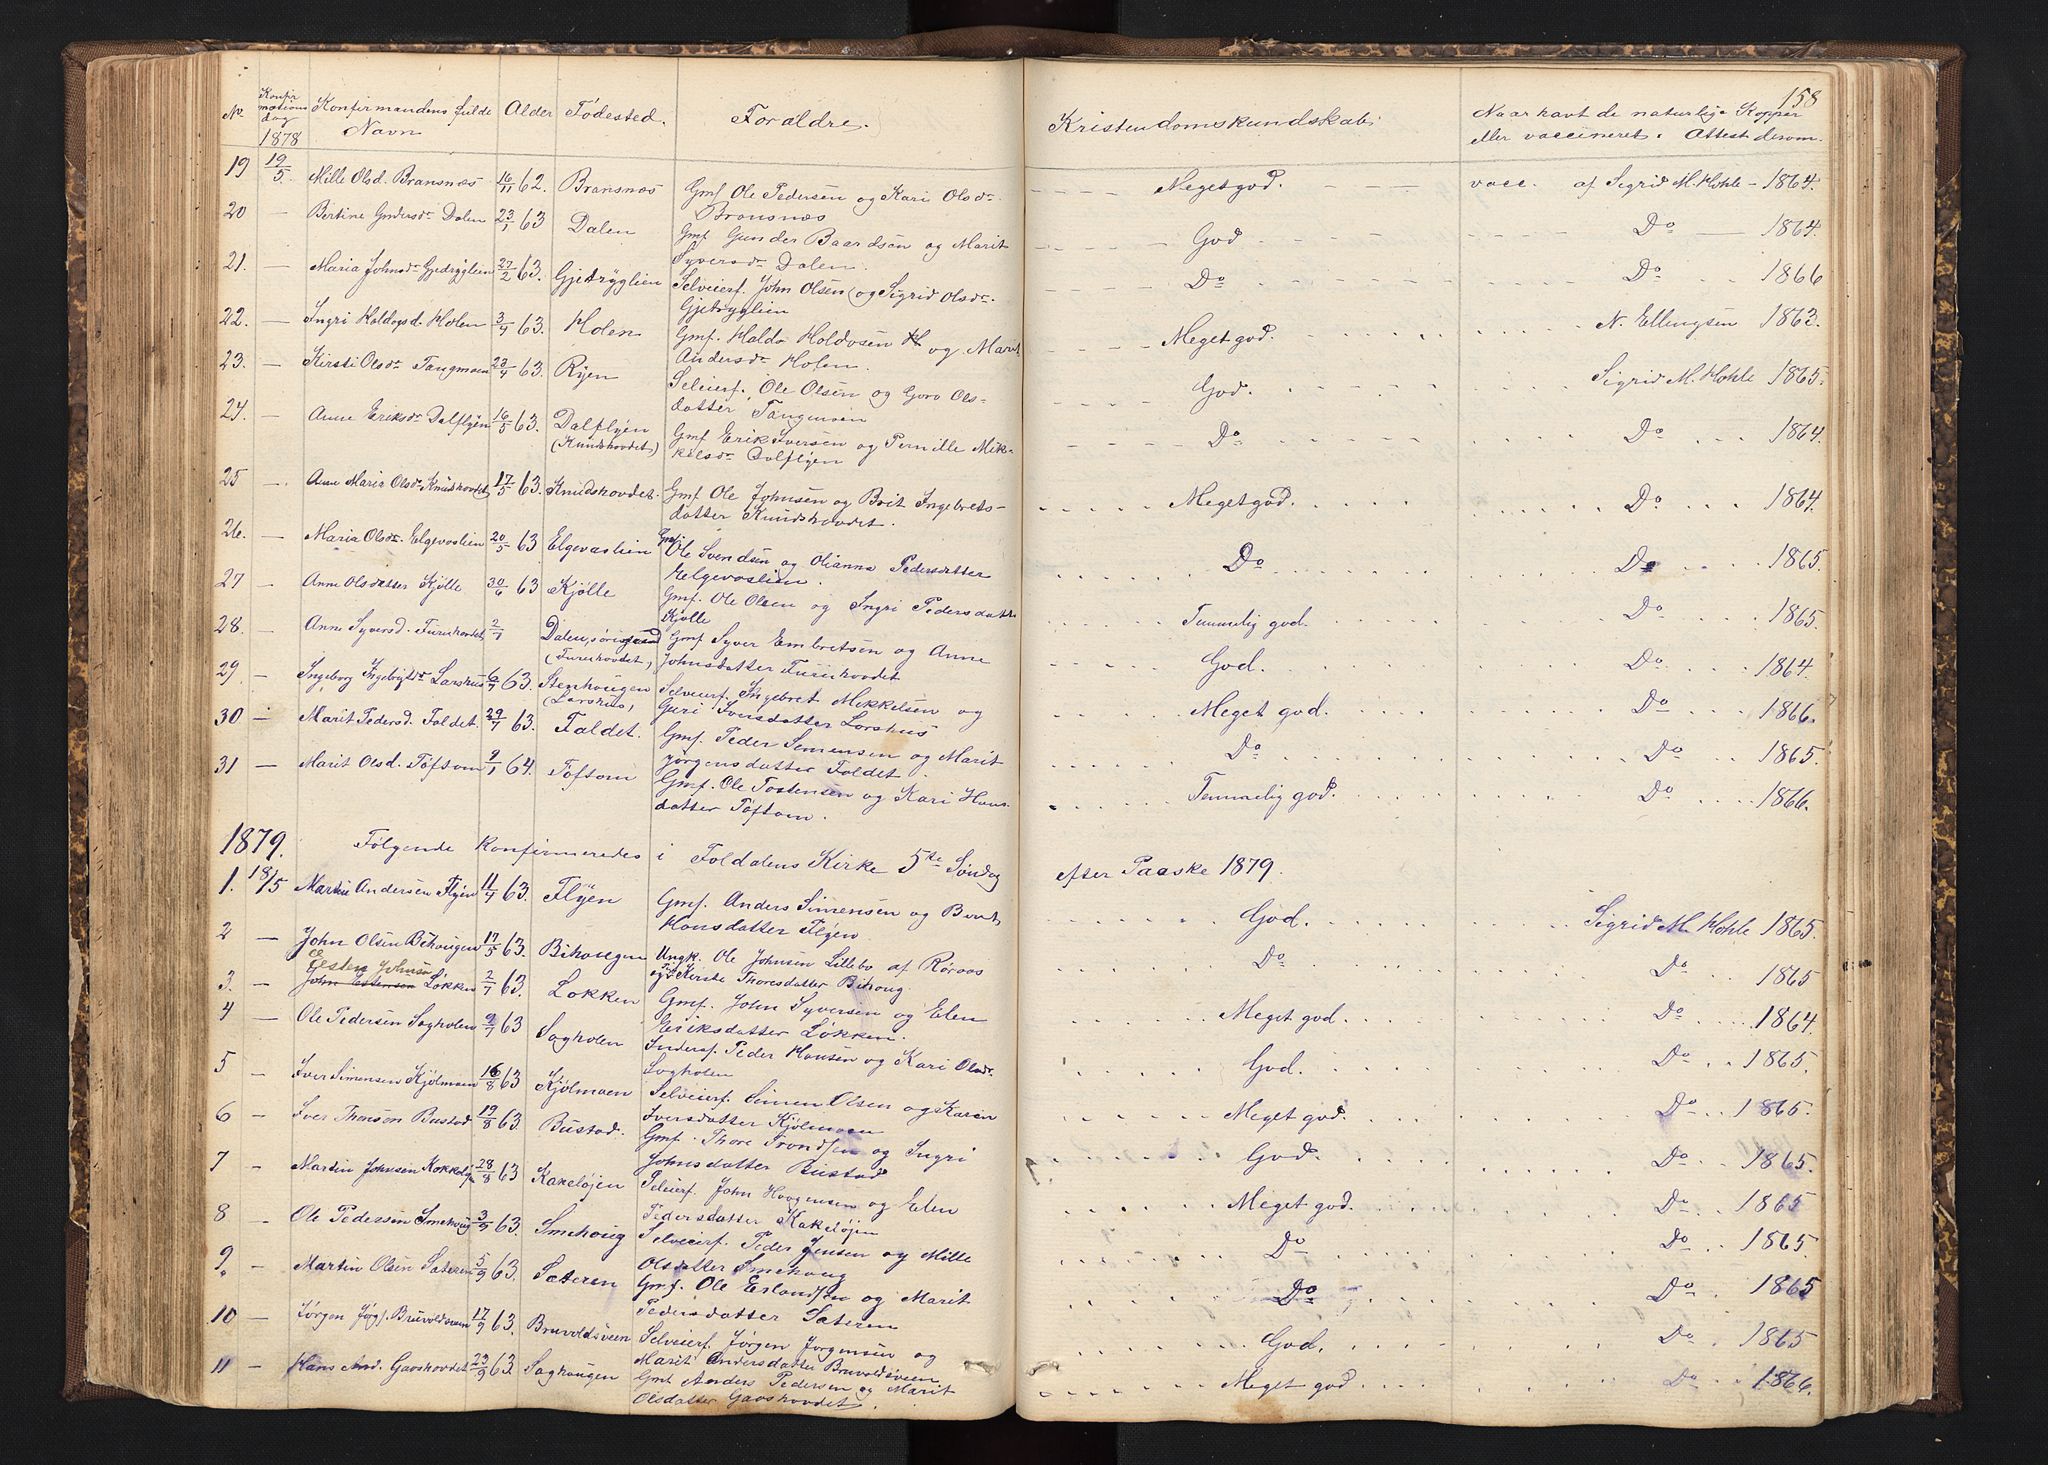 158
No. Konfirmations dag Konfirmandens fulde Navn Alder Fødested. Forældre. Kristendomskundskab. Naar havt de naturlige Kopper eller vaccineret. Attest derom.
1878
19 19/5. Mille Olsd. Bransnæs 16/11 62. Bransnæs Gmf Ole Pedersen og Kari Olsdr. Meget god. vacc. af Sigrid M. Hohle - 1864.
Bransnæs
20 — Bertine Gundersdr Dalen 23/1 63 Dalen Gmf Gunder Baardsen og Marit God Do 1864.
Syversdr Dalen.
21. — Maria Johnsdr Gjedryglien 27/2 63. Gjedryglien Selveierf. John Olsen og Sigrid Olsdr. Do Do 1866
Gjedryglien
22. — Ingri Haldosd. Holen 3/4 63. Holen Gmf. Haldo Holdosen og Marit Meget god. N. Ellingsen 1863.
Andersdr Holen.
23. — Kirsti Olsdr Tangmoen 23/4 63. Ryen Selveierf. Ole Olsen og Goro Ols- God. Sigrid M. Hohle 1865.
datter Tangmoen
24. — Anne Eriksdr Dalflyen 16/5 63. Dalflyen Gmf Erik Iversen og Pernille Mik- Do Do 1864.
(Knudshovdet) kelsdr Dalflyen
25 — Anne Maria Olsdr Knudshovdet 17/5 63. Knudshovdet. Gmf Ole Johnsen og Brit Ingebrets- Meget god. Do 1864
datter Knudshovdet.
26. — Maria Olsdr. Elgevaslien 20/5 63 Elgevaslien Gmf. Ole Svendsen og Olianna Pedersdatter Do Do 1865.
Elgevaslien.
27 — Anne Olsdatter Kjølle 30/6 63 Kjølle Gmf. Ole Olsen og Ingri Pedersdatt. Temmelig god. Do 1865.
Kjølle
28. — Anne Syversd. Furuhovdet 2/7 Dalen, søndre Gmf Syver Embretsen og Anne God. Do 1864
(Furuhovdet) Johnsdatter Furuhovdet
29 — Ingeborg Ingebrigtsdr Larshus 6/7 63. Stenhougen Selveierf. Ingebret Mikkelsen og Meget god. Do 1866.
(Larshus) Guri Iversdatter Larshus
30 — Marit Pedersd. Foldet. 29/7 63. Faldet. Gmf. Peder Simensen og Marit Do Do 1865.
Jørgensdatter Foldet.
31 — Marit Olsd. Tøftom 9/1 64. Tøftom Gmf. Ole Tostensen og Kari Hans- Temmelig god. Do 1866.
datter Tøftom.
1879. Følgende Konfirmeredes i Foldalens Kirke 5te Søndag efter Paaske 1879.
1. 18/5 Martin Andersen Flyen 11/4 63. Flyen Gmf. Anders Simensen og Berit God. Sigrid M. Hohle 1865.
Hansdatter Flyen
2 — John Olsen Bihougen 17/5 63. Bihougen Ungk. Ole Johnsen Lillebo af Røraas Do Do 1865
og Kirste Thoresdatter Bihoug.
Esten Johnsen
3. — John Estensen Løkken 2/7 63. Løkken Gmf. John Syversen og Elen Meget god. Do 1864.
Eriksdatter Løkken.
4 — Ole Pedersen Sagholen 9/7 63 Sagholen Inderst. Peder Hansen og Kari Olsdr. God. Do 1865.
Sagholen
5 — Iver Simensen Kjølmoen 16/8 63 Kjølmoen Selveierf. Simen Olsen og Karen Meget god. Do 1865.
Iversdatter Kjølmoen
6 — Iver Thoresen Bustad 19/8 63. Bustad. Gmf. Thore Trondsen og Ingri God. Do 1865.
Johnsdatter Bustad
7 — Martin Johnsen Kokkeløjen 28/8 63 Kakeløjen Selveierf. John Haagensen og Elen Meget god. Do 1865
Pedersdatter Kakeløjen
8 — Ole Pedersen Smehoug 3/9 63. Smehoug Selveierf. Peder Jensen og Mille Do Do 1865.
Olsdatter Smehoug
9. — Martin Olsen Sæteren 5/9 63. Sæteren Gmf. Ole Erlandsen og Marit Do Do 1865
Pedersdatter Sæteren
10 — Jørgen Jørgs. Bruvoldsveen 17/9 63. Bruvoldsveen Selveierf. Jørgen Jørgensen og God. Do 1865
Marit Andersdatter Bruvoldsveen
11 — Hans And. Gavshovdet 23/9 63. Saghougen Gmf Anders Pedersen og Marit Meget god. Do 1866.
Olsdatter Gavshovdet.